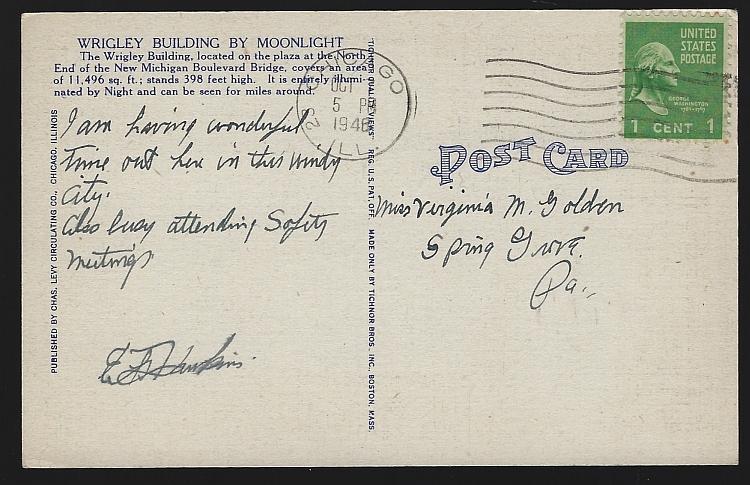 WRIGLEY BUILDING BY MOONLIGHT
The Wrigley Building, located on the plaza at the North
End of the New Michigan Boulevard Bridge, covers an area
of 11,496 sq. ft.; stands 398 feet high. It is entirely illumi-
nated by Night and can be seen for miles around.
I am having wonderful
time out here in this windy
City.
Also busy attending Safety
meetings
PUBLISHED BY CHAS. LEVY CIRCULATING CO., CHICAGO, ILLINOIS
"TICHNOR QUALITY VIEWS" REG. U.S. PAT. OFF. MADE ONLY BY TICHNOR BROS. INC., BOSTON, MASS.
CHICAGO
OCT
5 PM
1946
ILL.
23
UNITED
STATES
POSTAGE
GEORGE
WASHINGTON
1789-1797
1 CENT 1
POST CARD
Miss Virginia M. Golden
Spring Grove.
Pa.,